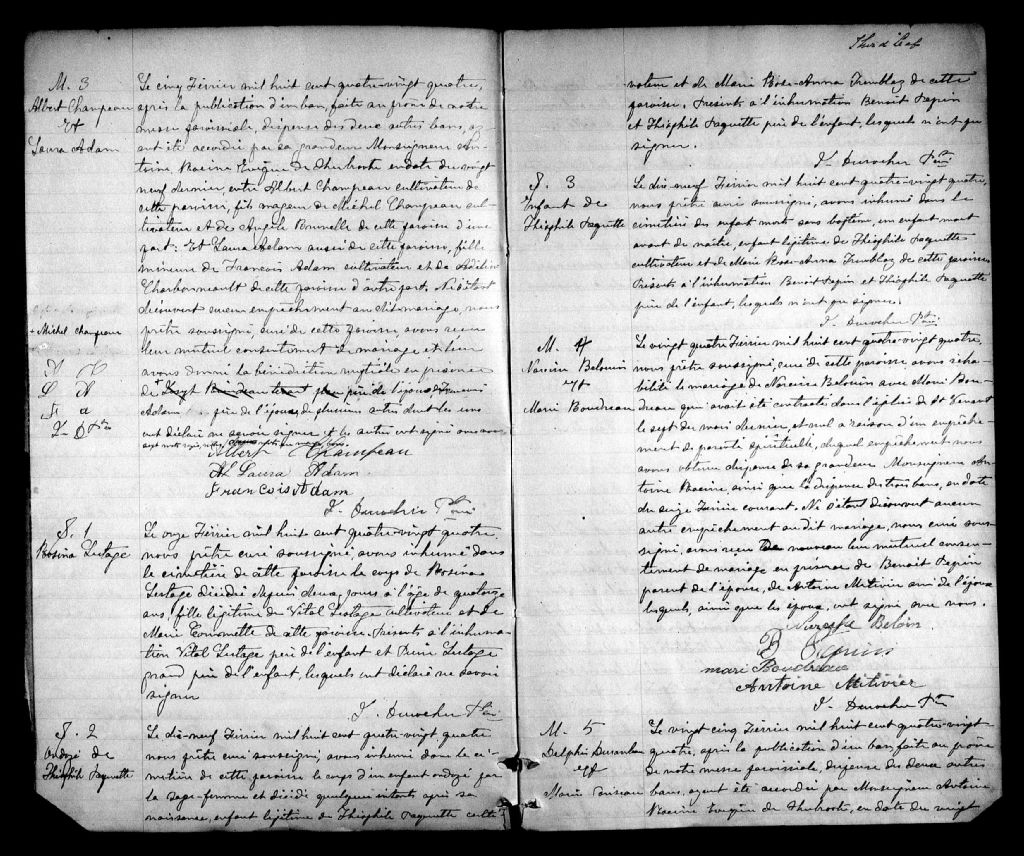 M. 3
Albert Champeau
et
Laura Adam
Le cinq Février mil huit cent quatre-vingt quatre,
après la publication d'un ban, faite au prône de notre
messe paroissiale, dispense des deux autres bans, ay-
ant été accordée par sa grandeur Monseigneur An-
toine Racine Evêque de Sherbrooke en date du vingt
neuf dernier, entre Albert Champeau cultivateur de
cette paroisse, fils majeur de Michel Champeau cul-
tivateur et de Angèle Brunelle de cette paroisse d'une
part: Et Laura Adam aussi de cette paroisse, fille
mineure de François Adam cultivateur et de
Charbonneault de cette paroisse d'autre part. Ne s'étant
découvert aucun empêchement au dit mariage, nous
prêtre soussigné, curé de cette paroisse, avons reçu
leur mutuel consentement de mariage et leur
avons donné la bénédiction nuptiale en présence
+ Michel Champeau
de + père de l'époux & François
Adam père de l'épouse, de plusieurs autres dont les uns
ont déclaré ne savoir signer et les autres ont signé avec nous
Albert Champeau
M Laura Adam
Francois Adam
J. Durocher Ptre
S. 1
Rosina Lestage
Le onze Février mil huit cent quatre-vingt quatre
nous prêtre curé soussigné, avons inhumé dans
le cimetière de cette paroisse le corps de Rosina
Lestage décédée depuis deux jours à l'âge de quatorze
ans, fille légitime de Vital Lestage cultivateur et de
Marie de cette paroisse. Présents à l'inhuma-
tion Vital Lestage père de l'enfant et Lestage
grand père de l'enfant lesquels ont déclaré ne savoir
signer
J. Durocher Ptre
S. 2
Ondoyé de
Théophile Paquette
Le dix-neuf Février mil huit cent quatre-vingt quatre
nous prêtre curé soussigné, avons inhumé dans le ci-
metière de cette paroisse le corps d'un enfant ondoyé par
la sage-femme et décédé quelques instants après sa
naissance, enfant légitime de Théophile Paquette culti-
Third leaf
vateur et de Marie Rose-Anna Tremblay de cette
paroisse. Présents à l'inhumation Benoit Papin
et Théophile Paquette père de l'enfant, lesquels n'ont pu
signer.
J. Durocher Ptre
S. 3
Enfant de
Théophile Paquette
Le dix-neuf Février mil huit cent quatre-vingt quatre,
nous prêtre curé soussigné, avons inhumé dans le
cimetière des enfants morts sans baptême, un enfant mort
avant de naître, enfant légitime de Théophile Paquette
cultivateur et de Marie Rose-Anna Tremblay de cette paroisse
Présents à l'inhumation Benoit Papin et Théophile Paquette
père de l'enfant, lesquels n'ont pu signer.
J. Durocher Ptre
M. 4
Narcisse Belouin
et
Marie Boudreau
Le vingt quatre Février mil huit cent quatre-vingt quatre,
nous prêtre soussigné, curé de cette paroisse, avons réha-
bilité le mariage de Narcisse Belouin avec Marie Bou-
dreau qui avait été contracté dans l'église de St Venant
le sept du mois dernier, et nul a raison d'un empêche-
ment de parenté spirituelle, duquel empêchement nous
avons obtenu dispense de sa grandeur Monseigneur An-
toine Racine, ainsi que la dispense de trois bans, en date
du seize Février courant. Ne s'étant découvert aucun
autre empêchement au dit mariage, nous curé sous-
signé, avons reçu de nouveau leur mutuel consen-
tement de mariage en présence de Benoit Papin
parent de l'épouse, de Antoine Mitivier ami de l'époux
lesquels, ainsi que les époux, ont signé avec nous.
Narcisse Beloin
B Papin
marie Boudreau
Antoine Mitivier
J. Durocher Ptre
M. 5
et
Marie
Le vingt cinq Février mil huit cent quatre-vingt
quatre, après la publication d'un ban, faite au prône
de notre messe paroissiale, dispense de deux autres
bans, ayant été accordée par Monseigneur Antoine
Racine Evêque de Sherbrooke, en date du vingt